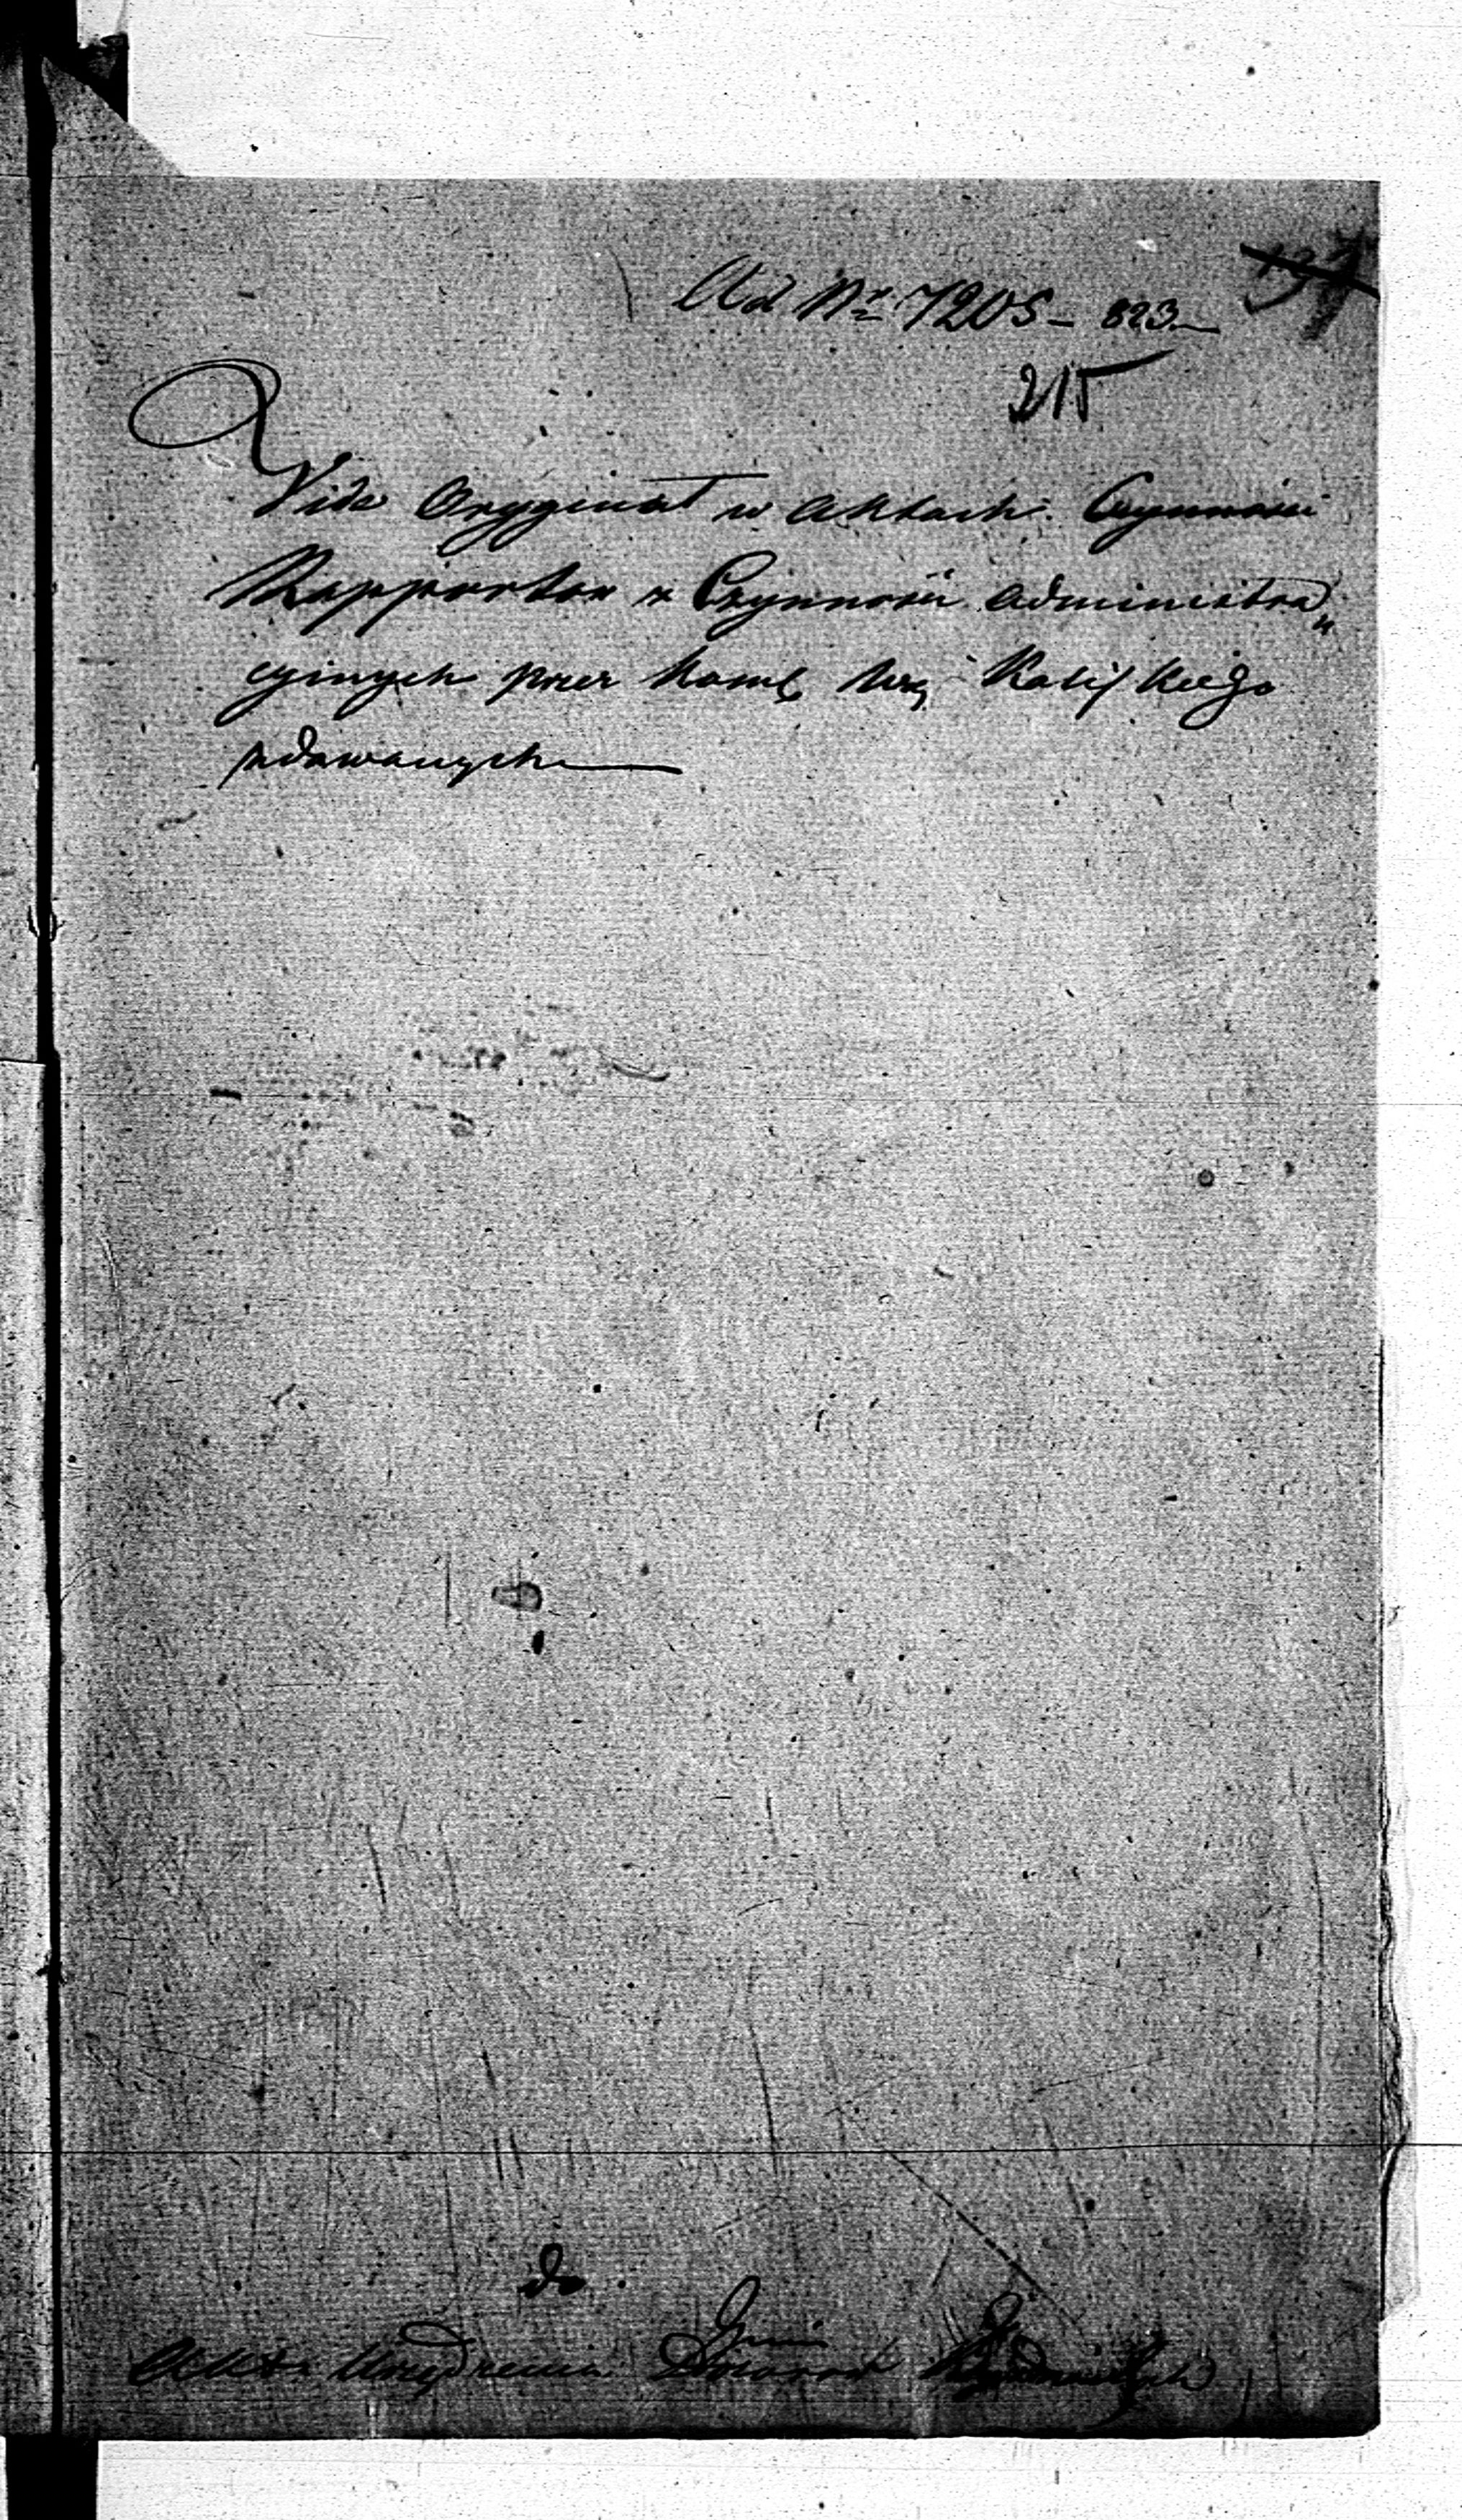 Ad Nr 7205 - 823
215
Vide Oryginał w Aktach Czynności
Rapportow z Czynności administra„
cyinych przez Kom Wdz Kalifkiego
zdawanych
do
Akt Urzędzenia Gmin